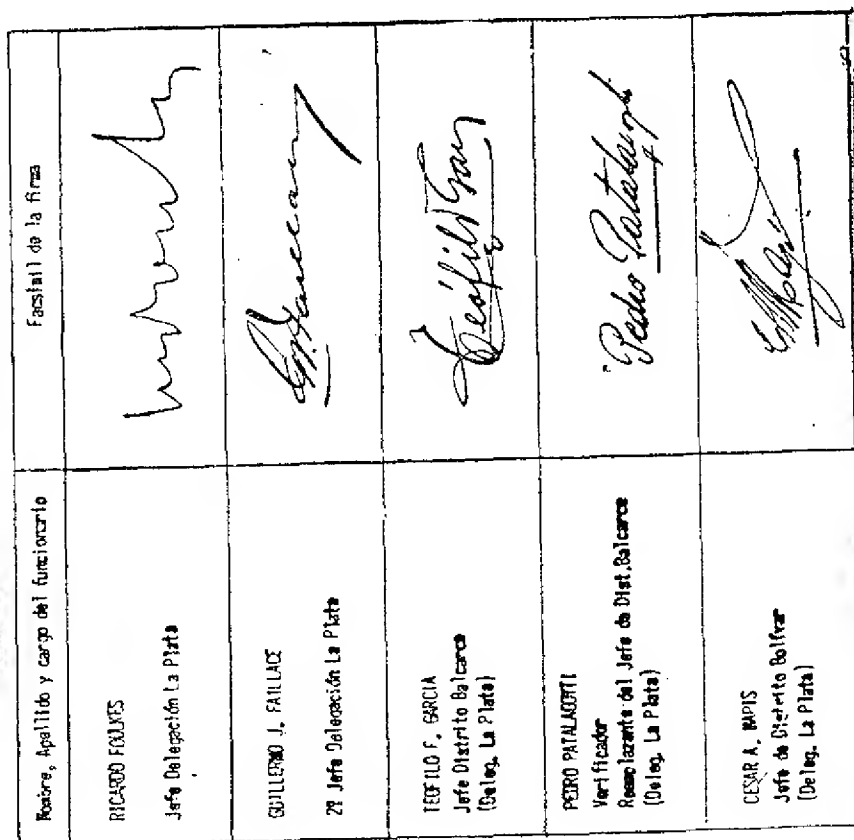 Nombre, Apellido y cargo del funcionario
Facsimil de la firma
RICARDO FOULKES
Jefe Delegación La Plata
GUILLERMO J. FAILLACE
2º Jefe Delegación La Plata
TEOFILO F. GARCIA
Jefe Distrito Balcarce
(Deleg. La Plata)
Teófilo
PEDRO PATALAGOTTI
Verificador
Reemplazante del Jefe de Dist.Balcarce
(Deleg. La Plata)
Pedro
CESAR A. MAPIS
Jefe de Distrito Bolívar
(Deleg. La Plata)